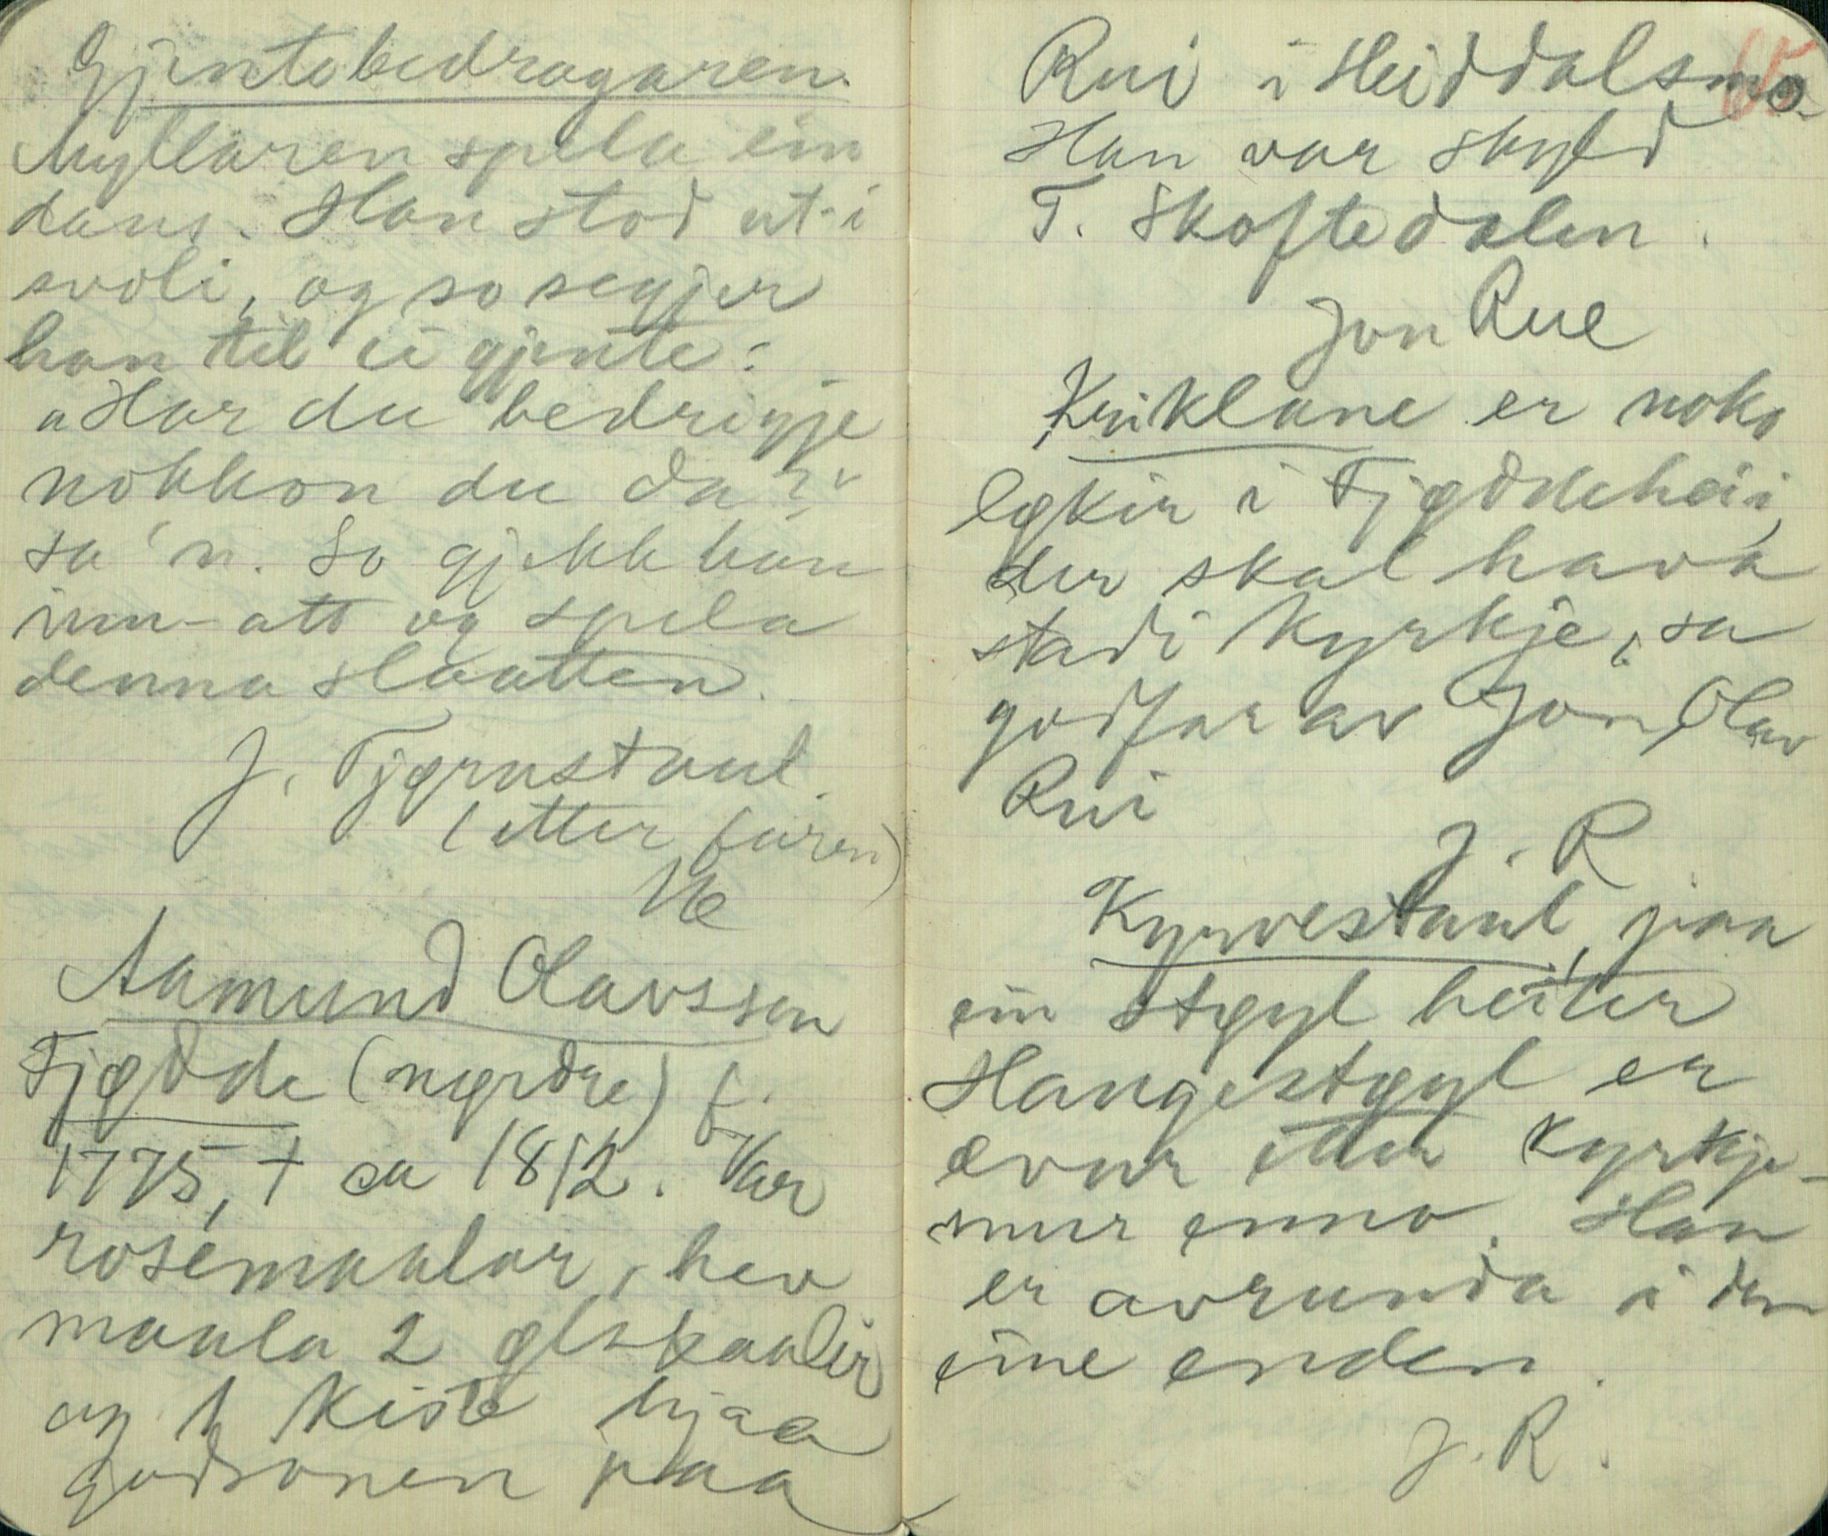 Gjentebedragaren.
Myllaren spela ein
dans. Han stod ut-i
svoli, og so segjer
han til ei gjente:
"Har du bedrigje
nokkon du da?"
sa 'n. So gjekk han
inn-att og spela
denna slaatten.
J. Tjørnstaul.
(etter faren)
Aamund Olavsson
Tjødde (nørdre) f.
1775, † ca 1812. Var
rosemaalar, hev
maala 2 ølskaalir
og 1 kiste hjaa
godsonen paa
65
Rui i Heiddalsmo.
Han var skyld
T. Skoftedalen.
Jon Rue
Kriklane er noko
løkir i Tjøddehei,
der skal hava
stadi kyrkje, sa
godfar av Jon, Olav
Rui
J. R
Kyrvestaul, paa
ein støyl heiter
Haugestøyl er
evur etter kyrkje-
mur enno. Han
er avrunda i den
eine enden.
J. R.